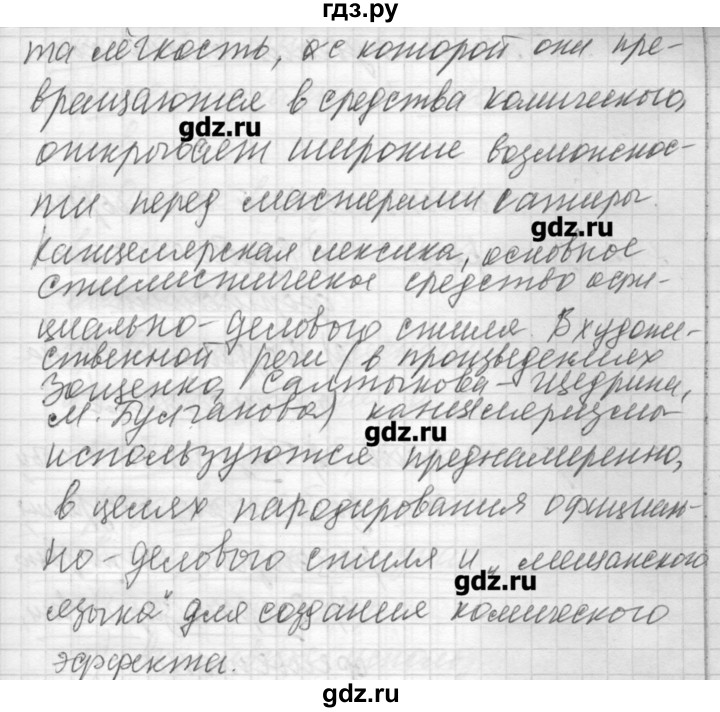 гдз.ру
та лёгкость, с которой они пре-
вращаются в средства комического,
gdz.ru
открывает широкие возможнос-
ти перед мастерами сатиры.
gdz.ru
Канцелярская лексика, основное
стилистическое средство офи-
циально-делового стиля. В художе-
ственной речи (в произведениях
Зощенко, Салтыкова-Щедрина,
М. Булгакова) канцеляризмы
gdz.ru
используются преднамеренно,
в целях пародирования официаль-
но-делового стиля и „мещанского
gdz.ru
языка" для создания комического
эффекта.
gdz.ru